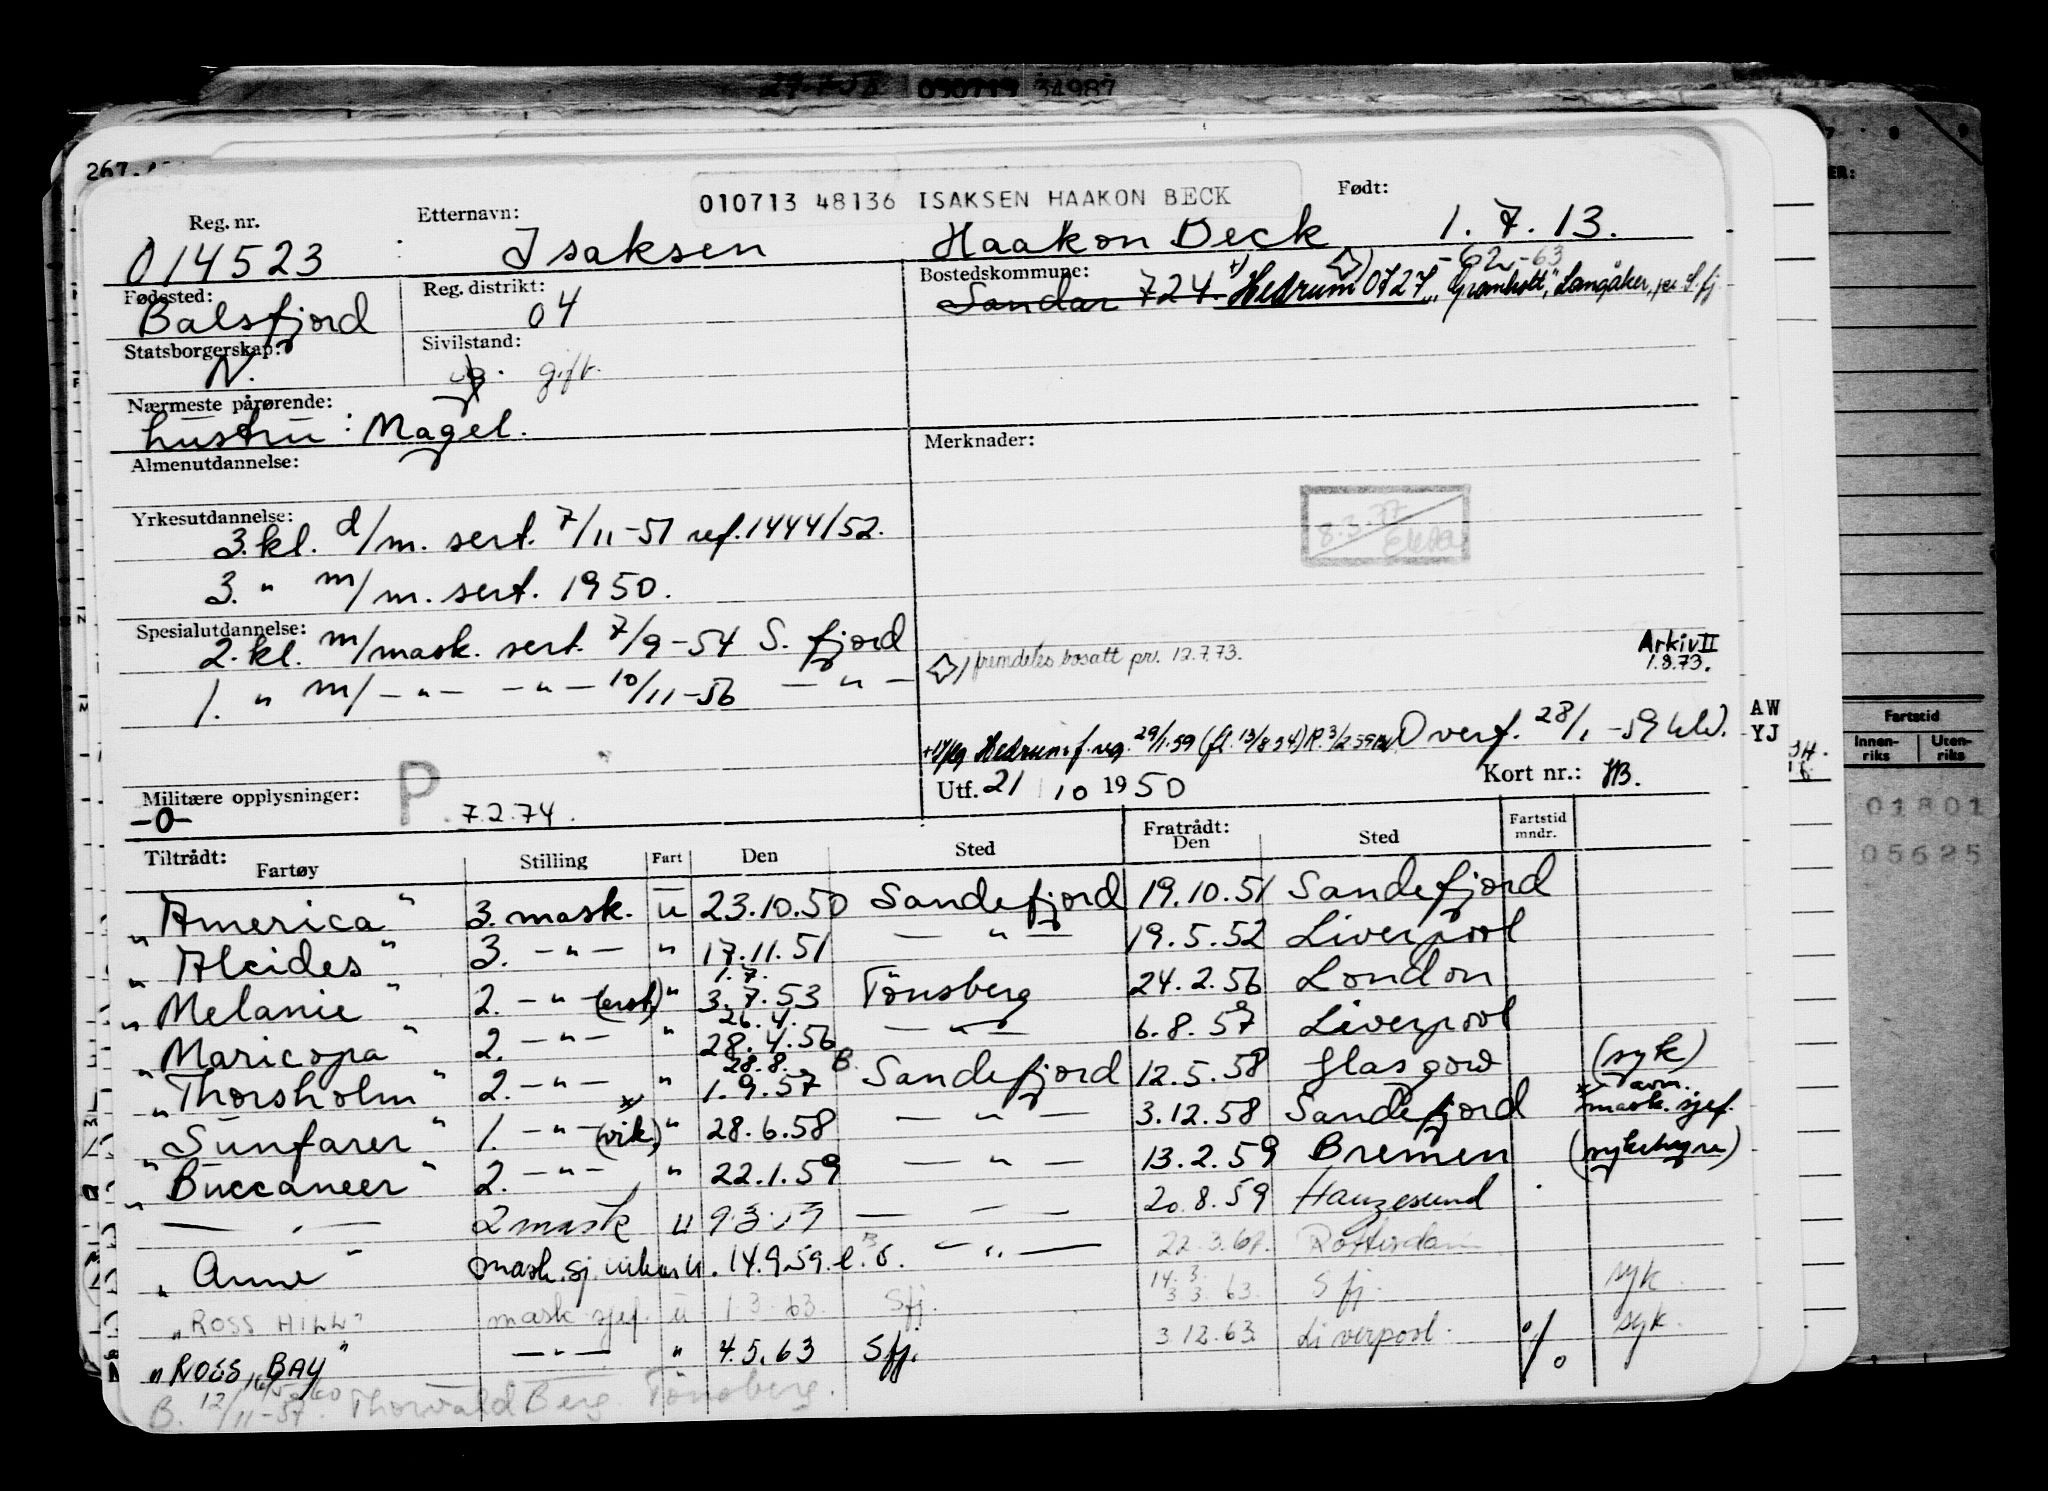 010713 34987
267.
010713 48136 ISAKSEN HAAKON BECK
Reg. nr. Etternavn: Født:
014523 Isaksen Haakon Beck 1.7.13.
Fødested: Reg. distrikt: Bostedskommune: -62-63
Balsfjord 04 Sandar 724. Hedrum 0727 "Granholt", Langåker, pr. S.fj
Statsborgerskap: Sivilstand:
N. ug. gift.
Nærmeste pårørende:
hustru: Magel.
Almenutdannelse: Merknader:
Yrkesutdannelse:
3.kl. d/m. sert. 7/11-51 ref. 1444/52.
8.3.77
3. " m/m. sert. 1950.
Spesialutdannelse:
2.kl. m/mask. sert. 7/9-54 S. fjord
Arkiv II
1.8.73.
fremdeles bosatt pr. 12.7.73.
1. " m/ - " - - " - 10/11-56 - " -
Hedrum f. reg. 29/1.59 (fl. 13/8 54) R. 3/2 59 Overf. 28/1-59
AW
YJ
Militære opplysninger: P. 7.2.74. Utf. 21/10 1950 Kort nr.: HB.
-0-
Tiltrådt: Fratrådt: Fartstid mndr.
Fartøy Stilling Fart Den Sted Den Sted
"America" 3. mask. u 23.10.50 Sandefjord 19.10.51 Sandefjord
"Alcides" 3. - " - " 17.11.51 - " - 19.5.52 Liverpool
1.7.
"Melanie" 2. - " - " 3.7.53 Tönsberg 24.2.56 London
26.4.
"Maricopa" 2. - " - " 28.4.56 - " - 6.8.57 Liverpool
28.8. B.
"Thorsholm" 2. - " - " 1.9.57 Sandefjord 12.5.58 Glasgow (syk)
"Sunfarer" 1. - " - (vik.) " 28.6.58 - " - 3.12.58 Sandefjord mask. sjef.
"Buccaneer" 2. - " - " 22.1.59 - " - 13.2.59 Bremen
- " - 2 mask u - " - 20.8.59 Haugesund
"Anne" mask. sj. vikar u. 14.9.59. - " - 22.3. Rotterdam
14.3.
"ROSS HILL" mask. sjef. u 1.3.63. Sfj. 3.3.63. Sfj. syk.
"ROSS BAY" - " - " 4.5.63 Sfj. 3.12.63. Liverpool. % syk.
B. 12/11-57. Thorvald Berg. Tönsberg.
Fartstid
Innen-riks Uten-riks
01801
05625